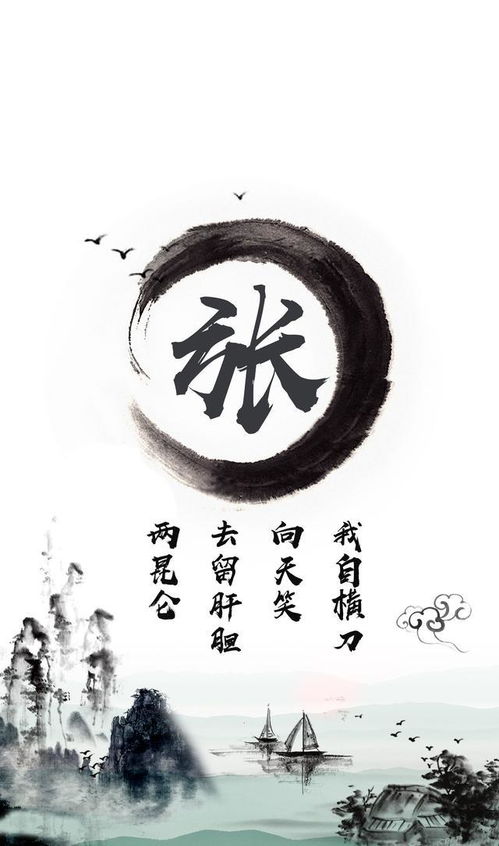 张
我自横刀
向天笑
去留肝胆
两昆仑